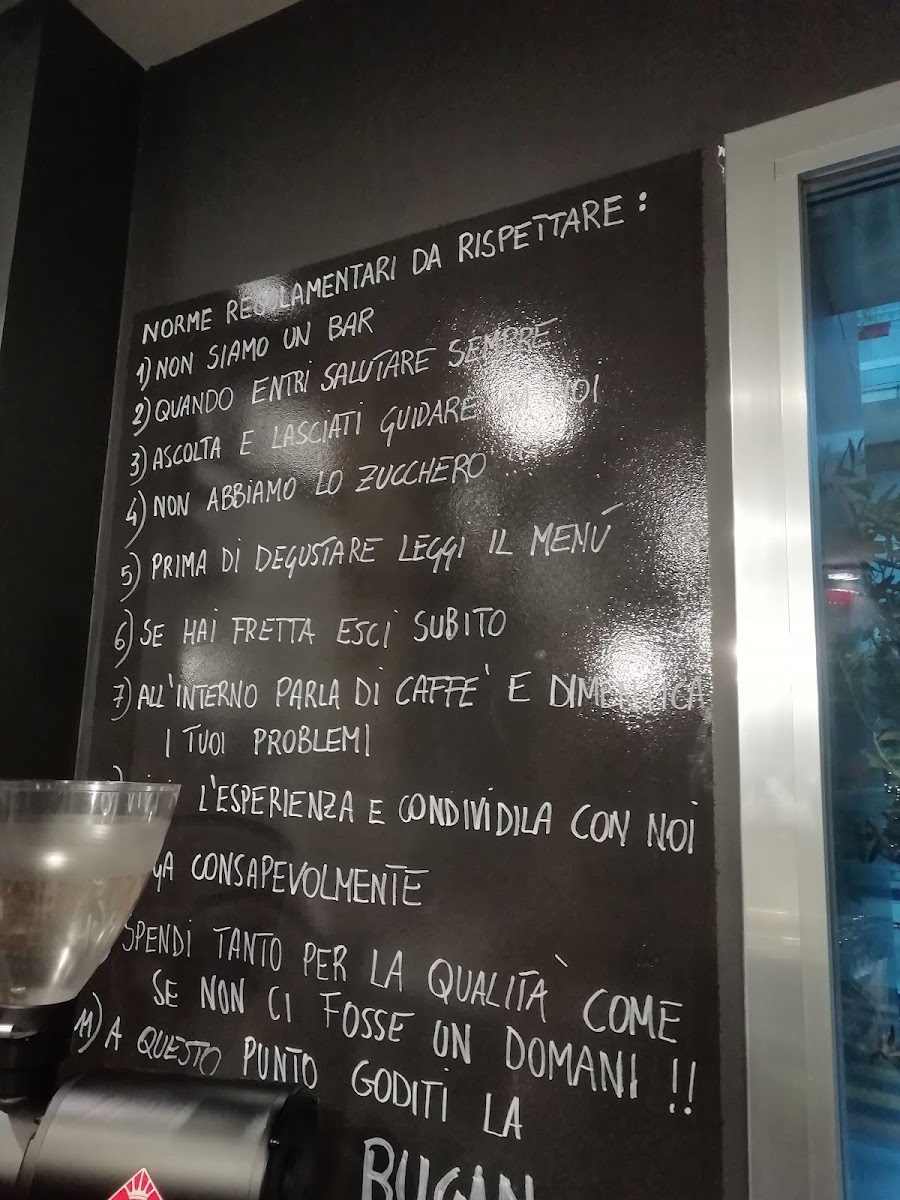 NORME REGOLAMENTARI DA RISPETTARE :
1) NON SIAMO UN BAR
2) QUANDO ENTRI SALUTARE SEMPRE
3) ASCOLTA E LASCIATI GUIDARE NOI
4) NON ABBIAMO LO ZUCCHERO
5) PRIMA DI DEGUSTARE LEGGI IL MENÚ
6) SE HAI FRETTA ESCI SUBITO
7) ALL'INTERNO PARLA DI CAFFE' E DIMENTICA
I TUOI PROBLEMI
L'ESPERIENZA E CONDIVIDILA CON NOI
CONSAPEVOLMENTE
SPENDI TANTO PER LA QUALITÀ COME
SE NON CI FOSSE UN DOMANI !!
11) A QUESTO PUNTO GODITI LA